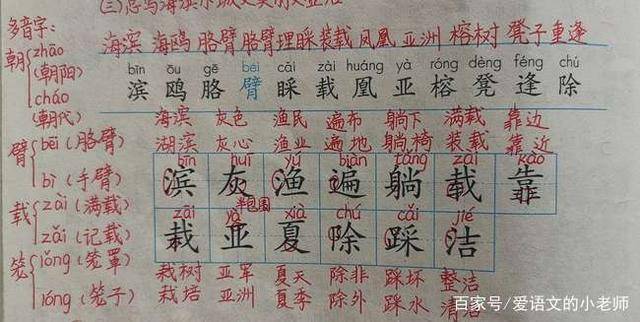 多音字：
朝 zhāo (朝阳)
cháo (朝代)
臂 bei (胳臂)
bì (手臂)
载 zài (满载)
zǎi (记载)
笼 lǒng (笼罩)
lóng (笼子)
海滨 海鸥 胳臂 胳臂 理睬 装载 凤凰 亚洲 榕树 凳子 重逢
bīn ōu gē bei cǎi zài huáng yà róng dèng féng chú
滨 鸥 胳 臂 睬 载 凰 亚 榕 凳 逢 除
海滨 灰色 渔民 遍布 躺下 满载 靠边
湖滨 灰心 渔业 遍地 躺椅 装载 靠近
bīn huī yú biàn tǎng zài kào
滨 灰 渔 遍 躺 载 靠
半包围
zāi yà xià chú cǎi jié
栽 亚 夏 除 踩 洁
栽树 亚军 夏天 除非 踩坏 整洁
栽培 亚洲 夏季 除外 踩水 清洁
百家号/爱语文的小老师